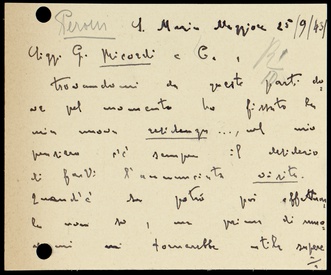 Perosi S. Maria Maggiore 25/9/43
Sigg. G. Ricordi e C.,
trovandomi da queste parti do=
ve pel momento ho fissato la
mia nuova residenza..., nel mio
pensiero c'è sempre il desiderio
di farVi l'annunciata visita.
Quand'è che potrò poi effettuar=
la non so, ma prima di muo=
vermi mi tornerebbe utile sapere